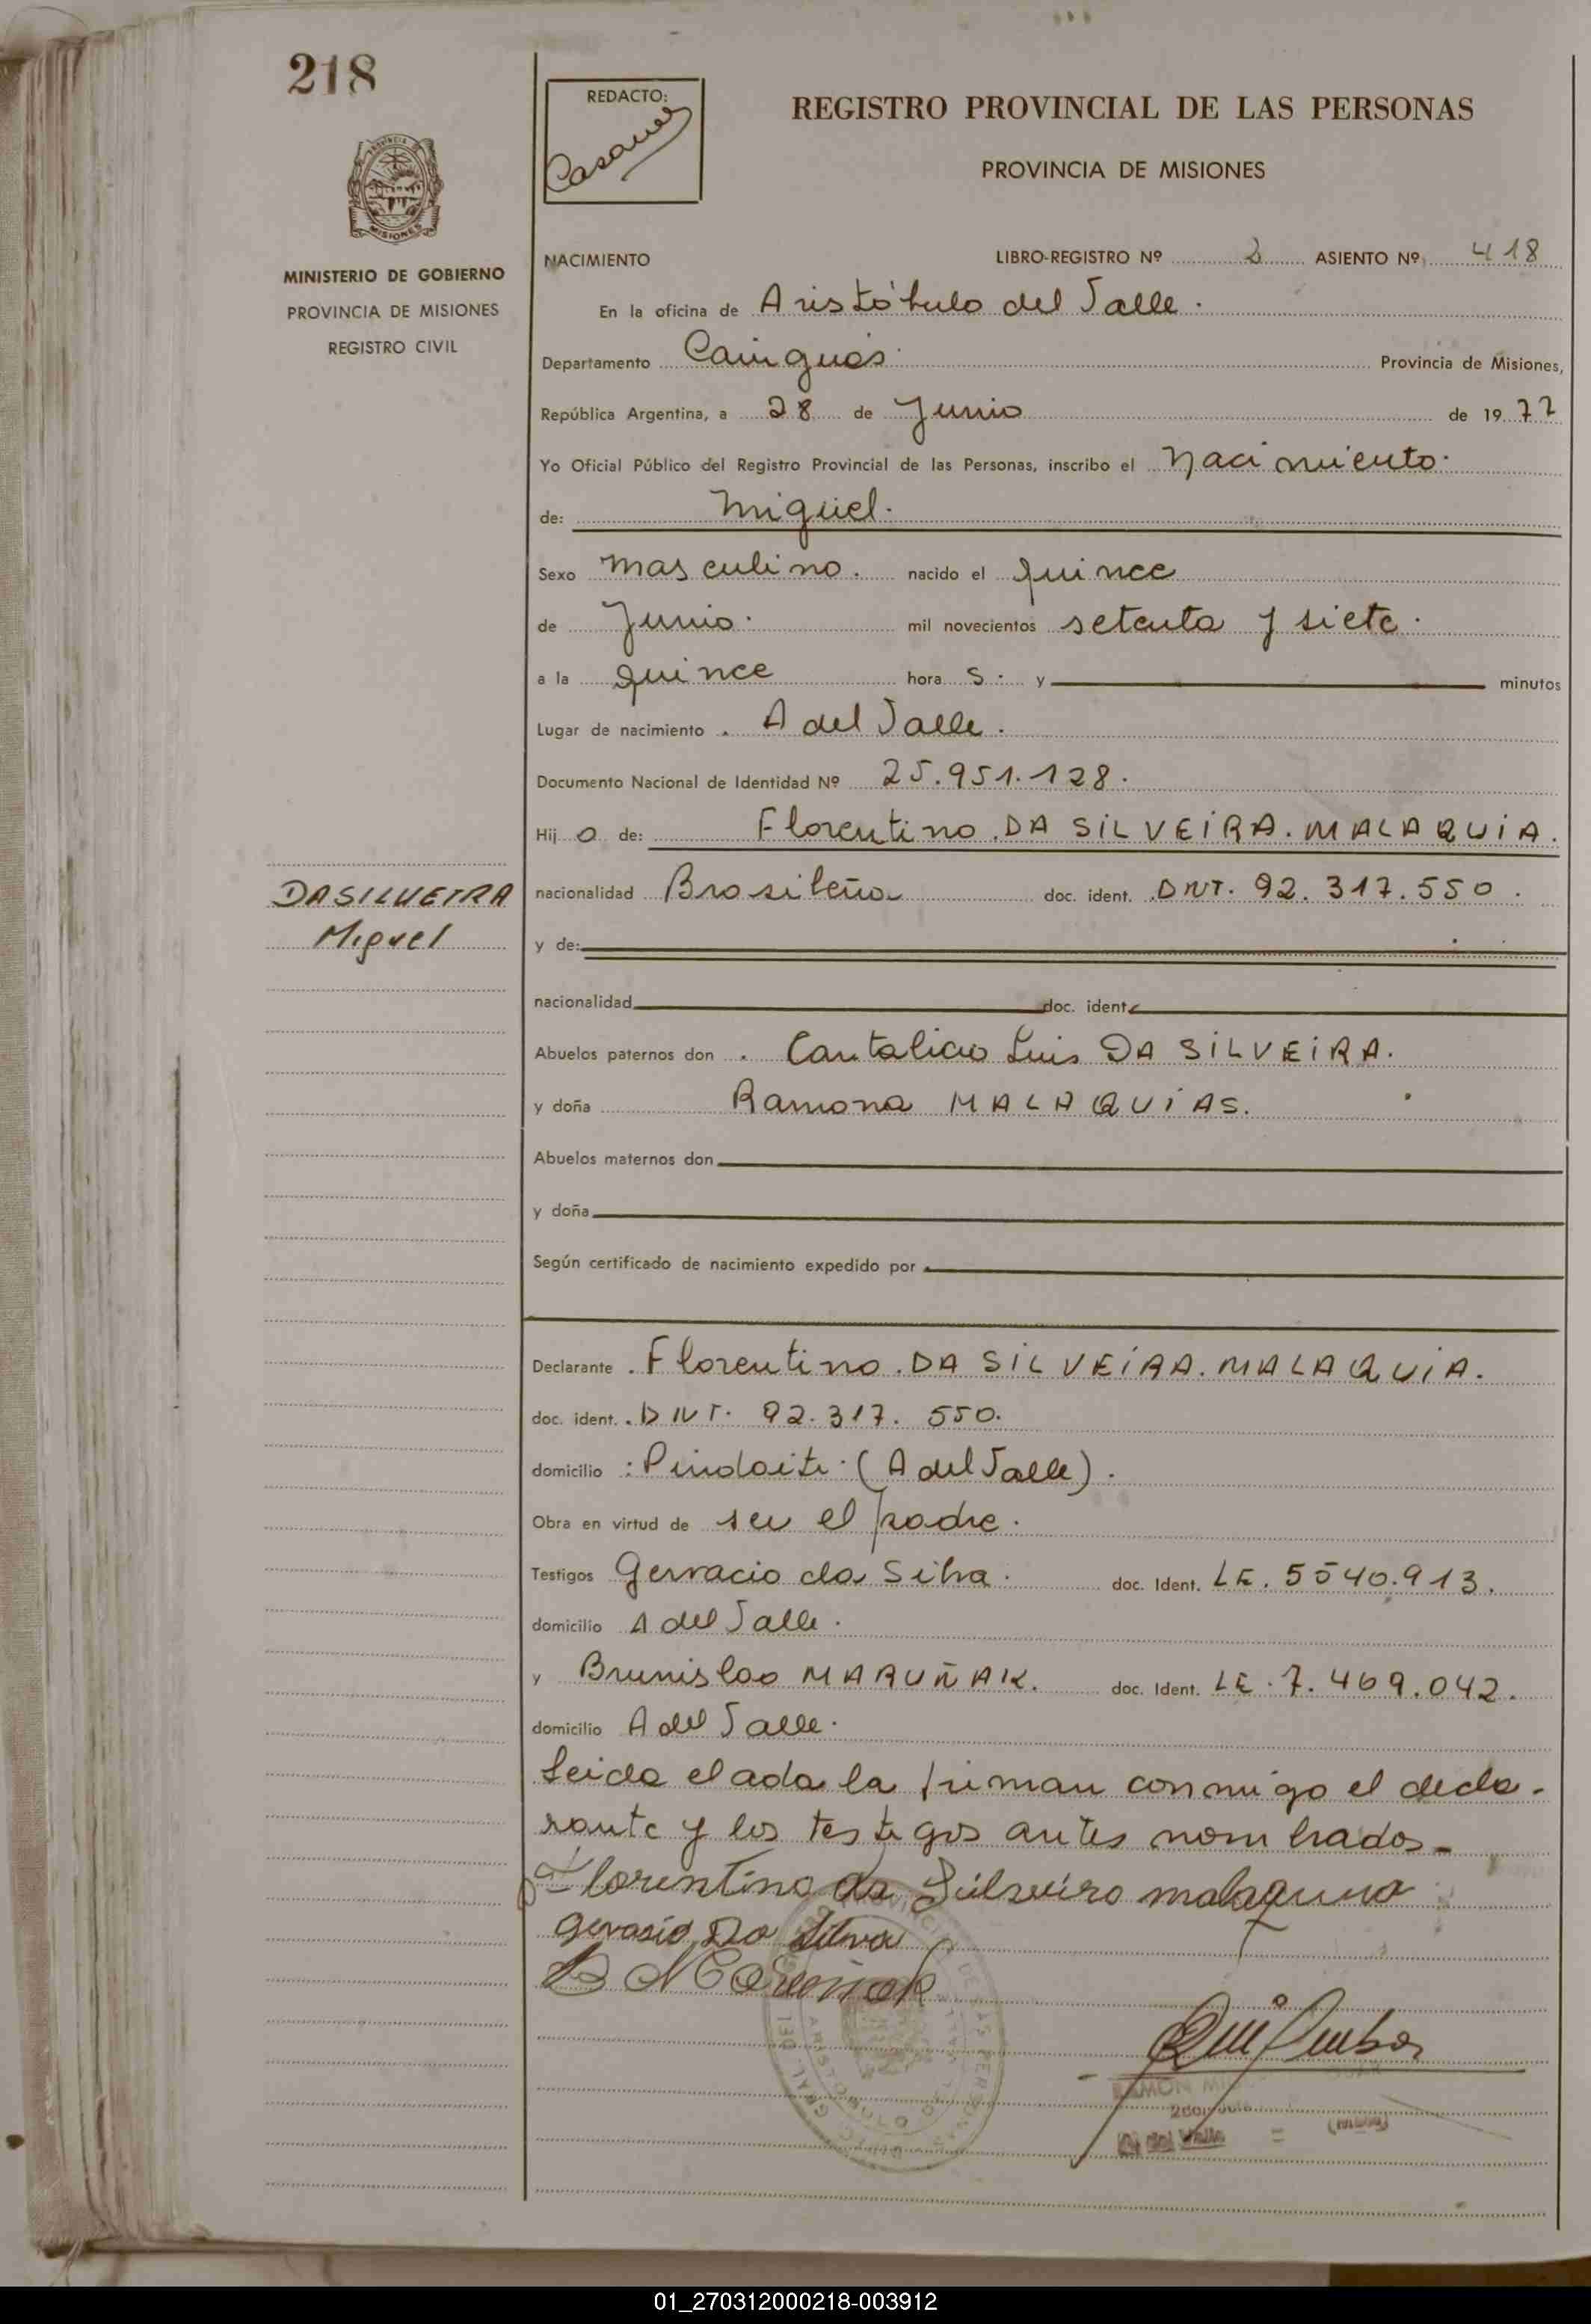 218
REDACTO:
REGISTRO PROVINCIAL DE LAS PERSONAS
PROVINCIA DE MISIONES
MISIONES
MINISTERIO DE GOBIERNO
PROVINCIA DE MISIONES
REGISTRO CIVIL
NACIMIENTO LIBRO-REGISTRO Nº 2 ASIENTO Nº 418
En la oficina de Aristóbulo del Valle.
Departamento Cainguás. Provincia de Misiones,
República Argentina, a 28 de Junio de 1977
Yo Oficial Público del Registro Provincial de las Personas, inscribo el Nacimiento.
de: Miguel.
Sexo masculino. nacido el quince
de Junio. mil novecientos setenta y siete.
a la quince hora s. y minutos
Lugar de nacimiento. A del Valle.
Documento Nacional de Identidad Nº 25.951.128.
Hij o de: Florentino DA SILVEIRA. MALAQUIA.
DASILVEIRA
Miguel
nacionalidad Brasileña doc. ident. DNT. 92.317.550.
y de:
nacionalidad doc. ident.
Abuelos paternos don. Cantalicio Luis DA SILVEIRA.
y doña Ramona MALAQUIAS.
Abuelos maternos don
y doña
Según certificado de nacimiento expedido por
Declarante. Florentino. DA SILVEIRA. MALAQUIA.
doc. ident.. DNT. 92.317.550.
domicilio: Pindaiti. (A del Valle).
Obra en virtud de ser el padre.
Testigos Gervacio da Silva. doc. Ident. LE. 5540.913.
domicilio A del Valle.
y Brunislao MARUÑAK. doc. Ident. LE. 7.469.042.
domicilio A del Valle.
Leida el acta la firman conmigo el decla-
rante y los testigos antes nombrados.
Florentino da Silveiro malaquia
Gervasio Da Silva
RAMON
A del Valle
01_270312000218-003912